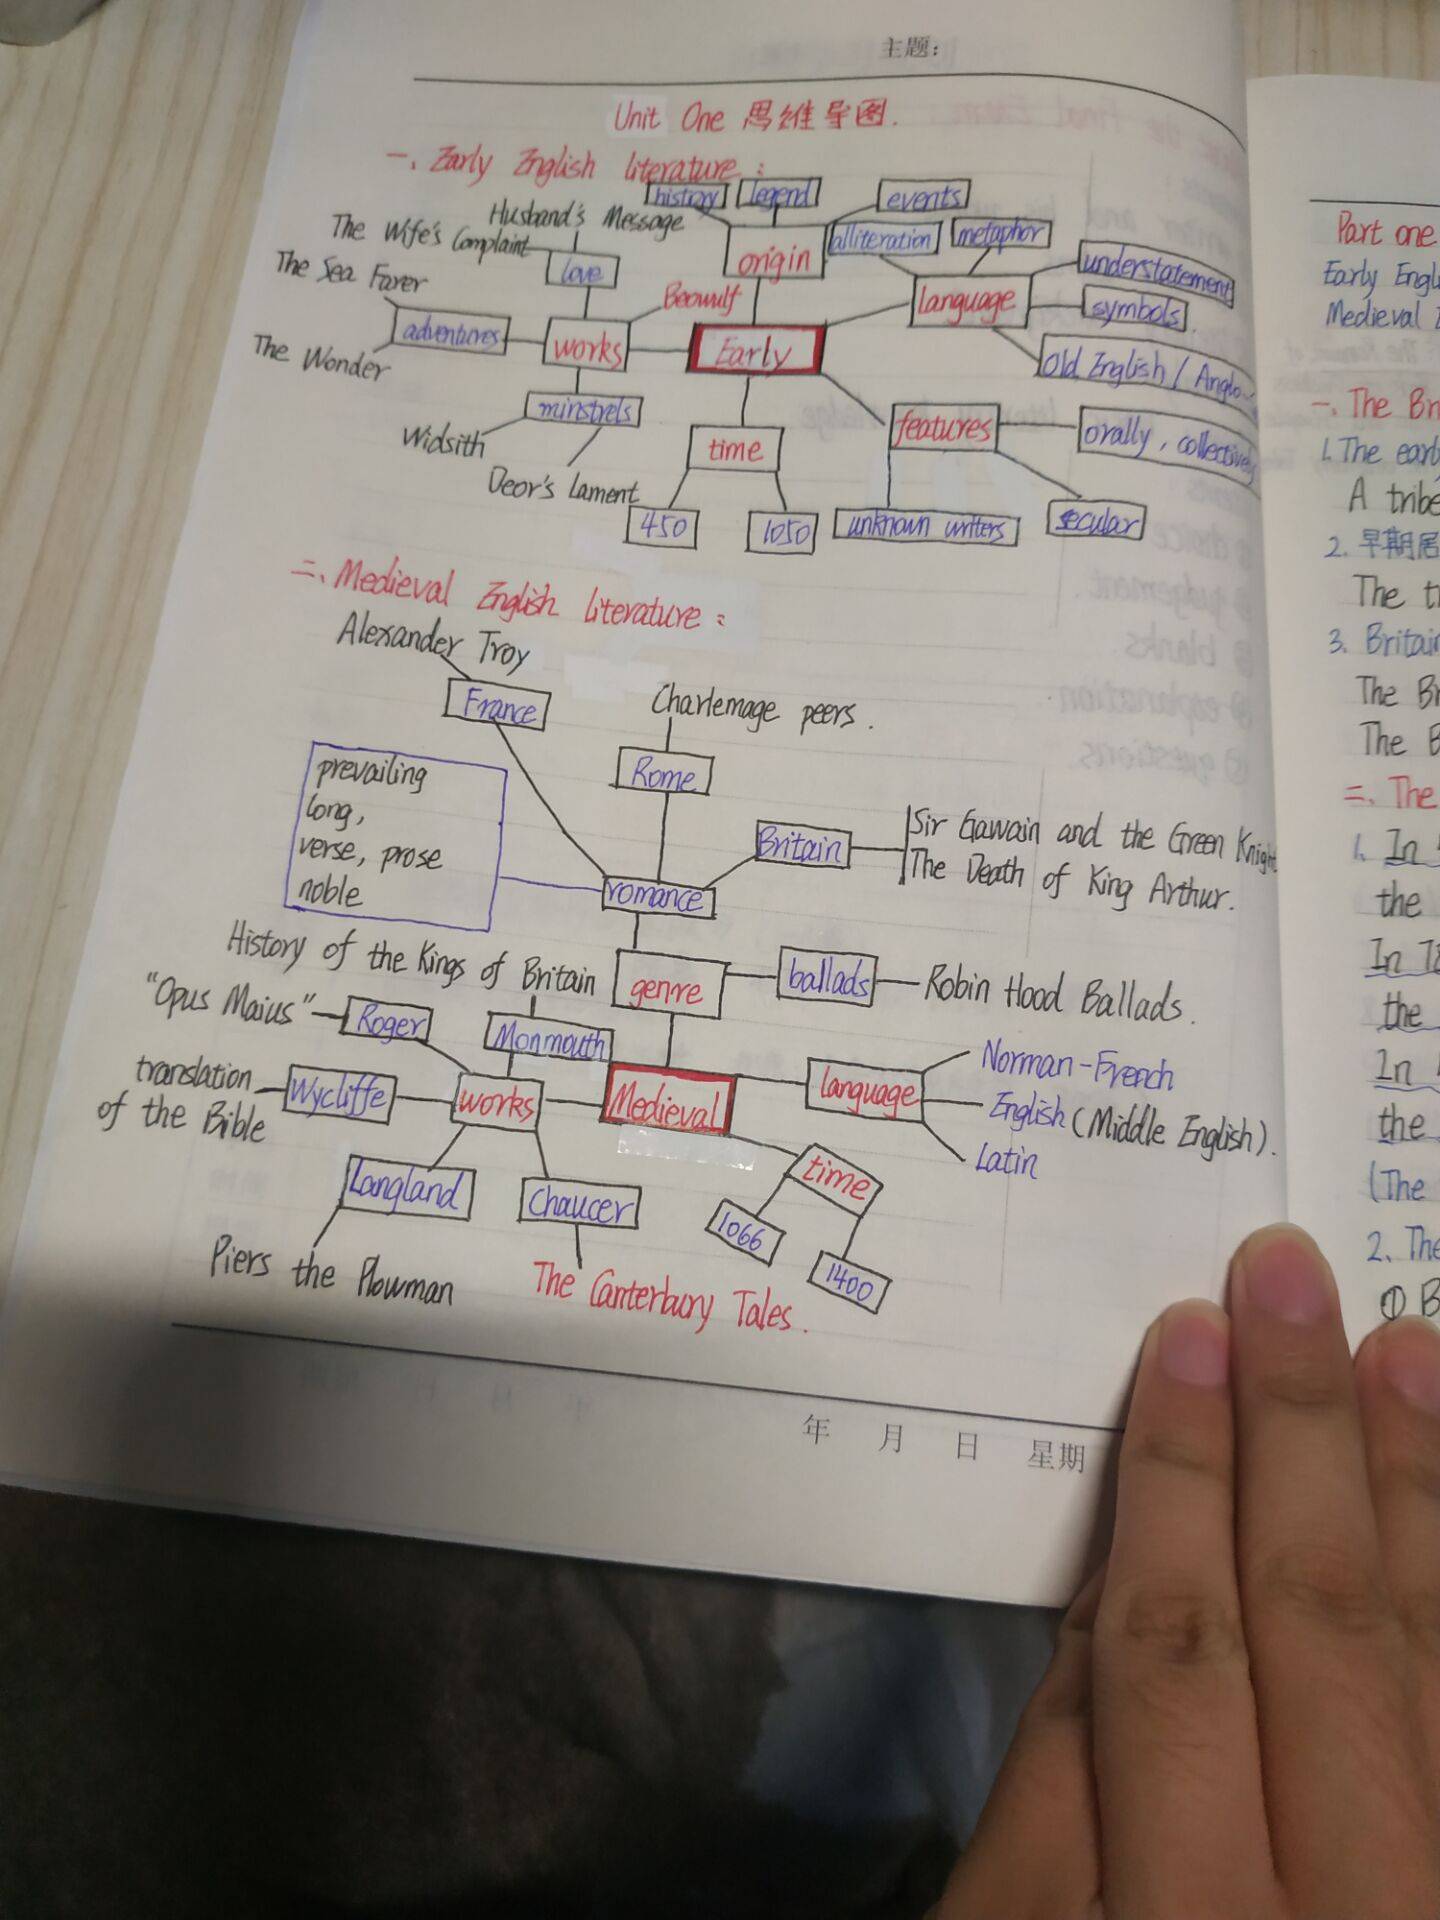 主题:
Unit One 思维导图.
一、Early English literature:
history
legend
events
The Wife's Complaint
Husband's Message
love
origin
alliteration
metaphor
understatement
The Sea Farer
adventures
The Wonder
works
Beowulf
Early
language
symbols
Old English / Anglo
minstrels
Widsith
Deor's Lament
time
450
1050
features
orally, collectively
unknown writers
secular
二、Medieval English literature:
Alexander Troy
France
Charlemage peers.
Rome
prevailing
long,
verse, prose
noble
Britain
Sir Gawain and the Green Knight
The Death of King Arthur.
romance
History of the Kings of Britain
genre
ballads
Robin Hood Ballads.
"Opus Maius"
Roger
Monmouth
translation
of the Bible
Wycliffe
works
Medieval
language
Norman-French
English (Middle English).
Latin
Langland
Chaucer
time
1066
1400
Piers the Plowman
The Canterbury Tales.
年 月 日 星期
Part one
Early
Medieval
一、The
1. The
A tribe
2. 早期居
The
3. Britain
The
The
二、The
1. In
the
In
the
In
the
(The
2. The
①